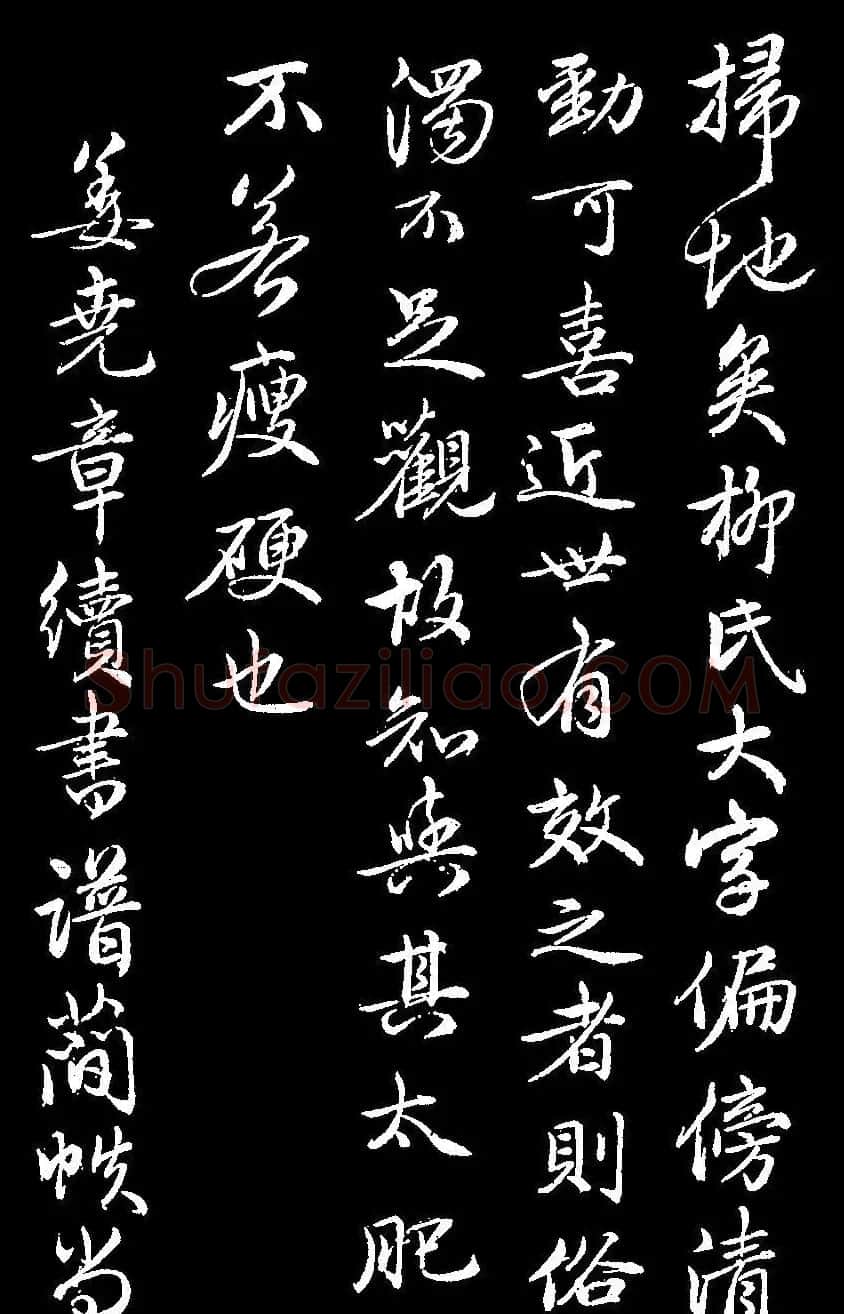 掃地矣柳氏大字偏傍清
勁可喜近世有效之者則俗
濁不足觀故知與其太肥
不若瘦硬也
姜堯章續書譜簡帙當
Shufaziliao.COM